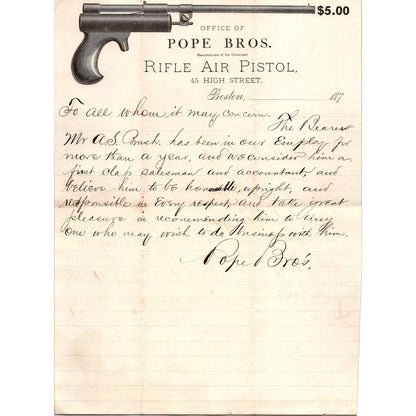 $5.00
OFFICE OF
POPE BROS.
Manufacturers of the Celebrated
RIFLE AIR PISTOL,
45 HIGH STREET.
Boston, 187
To all whom it may concern. The Bearer
Mr A.S. Brush. has been in our Employ for
more than a year, and we consider him a
first class salesman and accountant, and
believe him to be honorable, upright, and
responsible in Every respect, and take great
pleasure in recommending him to any
one who may wish to do business with him.
Pope Bro's.